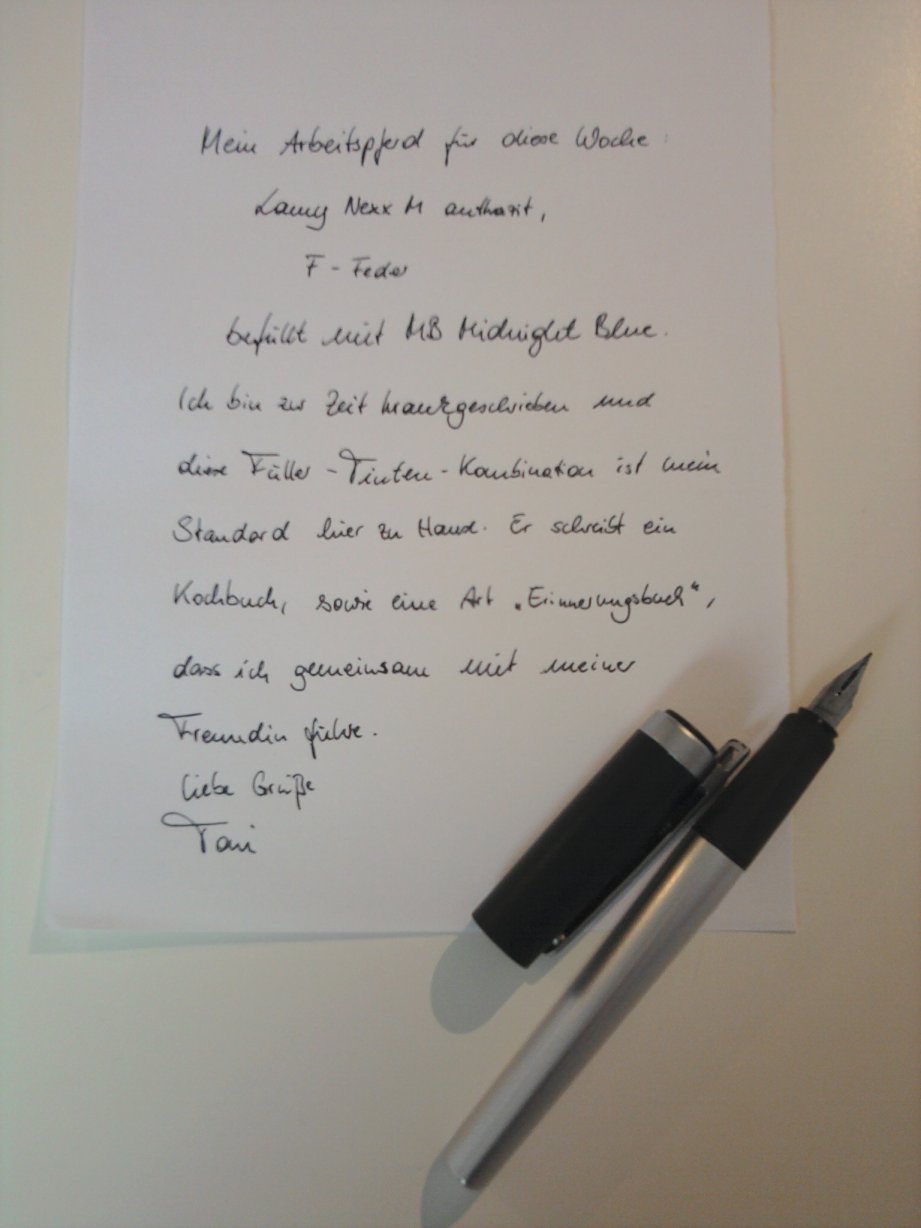 Mein Arbeitspferd für diese Woche:
Lamy Nexx M anthrazit,
F - Feder
befüllt mit MB Midnight Blue.
Ich bin zur Zeit krankgeschrieben und
diese Füller - Tinten - Kombination ist mein
Standard hier zu Hause. Er schreibt ein
Kochbuch, sowie eine Art „Erinnerungsbuch“,
dass ich gemeinsam mit meiner
Freundin führe.
Liebe Grüße
Tani